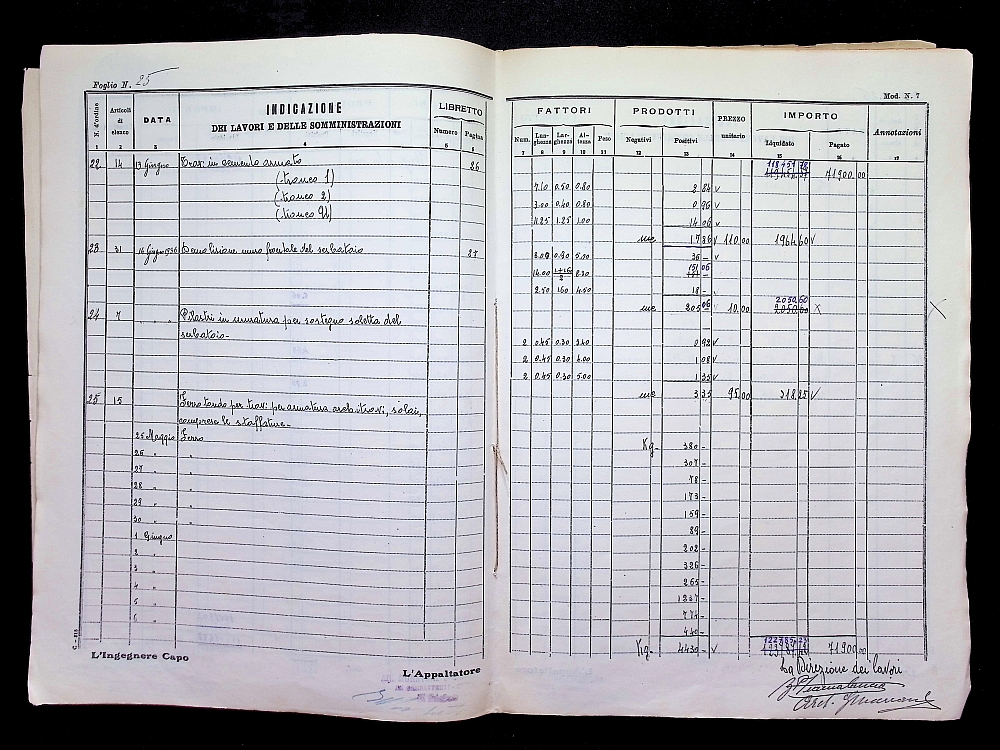 Foglio N. 25
Mod. N. 7
N. d'ordine Articoli di elenco DATA INDICAZIONE DEI LAVORI E DELLE SOMMINISTRAZIONI LIBRETTO Numero Pagina FATTORI Num. Lunghezza Larghezza Altezza Peso PRODOTTI Negativi Positivi PREZZO unitario IMPORTO Liquidato Pagato Annotazioni
1 2 3 4 5 6 7 8 9 10 11 12 13 14 15 16 17
22 14 13 Giugno Trav. in cemento armato 26 71900.00
(tronco 1) 7.10 0.50 0.80 2 84 v
(tronco 2) 3.00 0.40 0.80 0 96 v
11.25 1.25 1.00 14 06 v
mc 17 86 v 110.00 1964 60 v
23 31 16 Giugno 1936 Demolizione muro frontale del serbatoio 27
3.00 5.00 36 -
14.00 151 06
2.50 1.60 4.50 18 -
mc 205 06 10.00 2050 60 X
24 7 Pilastri in muratura per sostegno soletta del
serbatoio-
2 0.45 0.30 3.40 0 92 v
2 0.45 0.30 4.00 1 08 v
2 0.45 0.30 5.00 1 35 v
mc 3 35 95.00 318.25 v
25 15 Ferro tondo per travi per armatura architravi, solai,
comprese le staffature-
25 Maggio Ferro Kg- 380 -
26 " " 307 -
27 " " 78 -
28 " " 173 -
29 " " 159 -
30 " " 89 -
1 Giugno 202 -
2 " 326 -
3 " 265 -
4 " 1237 -
5 " 774 -
6 " 440 -
Kg- 4430 - v 71900.00
L'Ingegnere Capo
L'Appaltatore
La Direzione dei lavori